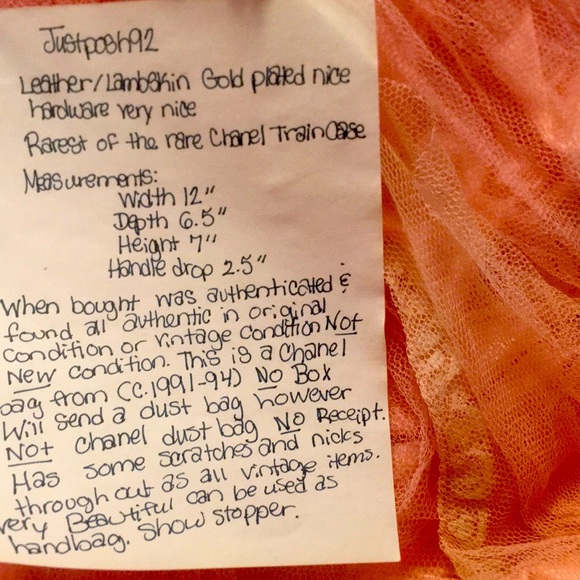 Justposh92
Leather/Lambskin Gold plated nice
hardware very nice
Rarest of the rare Chanel Train Case
Measurements:
Width 12"
Depth 6.5"
Height 7"
Handle drop 2.5"
When bought was authenticated &
found all authentic in original
condition or vintage condition Not
New condition. This is a Chanel
bag from (C.1991-94) No Box
Will send a dust bag however
Not Chanel dust bag No Receipt.
Has some scratches and nicks
through out as all vintage items.
very Beautiful can be used as
handbag. Show stopper.